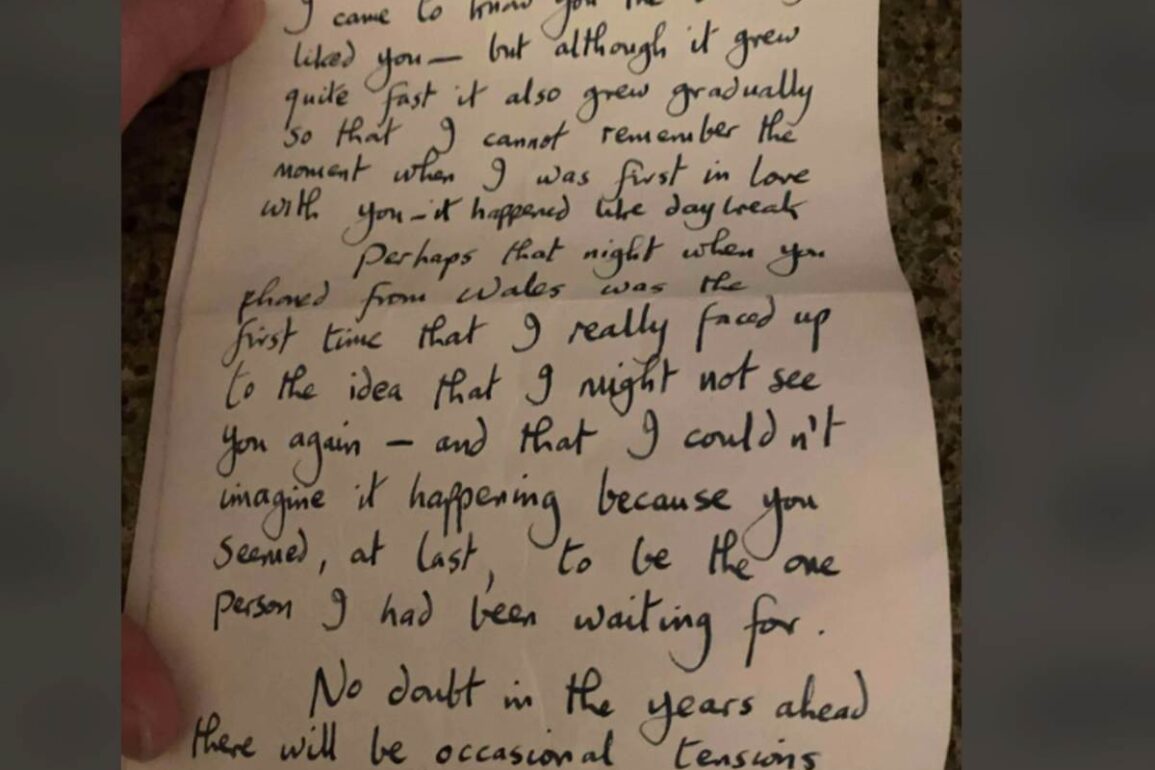 I came to know you the
liked you — but although it grew
quite fast it also grew gradually
so that I cannot remember the
moment when I was first in love
with you – it happened like daybreak
Perhaps that night when you
phoned from Wales was the
first time that I really faced up
to the idea that I might not see
you again – and that I couldn't
imagine it happening because you
seemed, at last, to be the one
person I had been waiting for.
No doubt in the years ahead
there will be occasional tensions